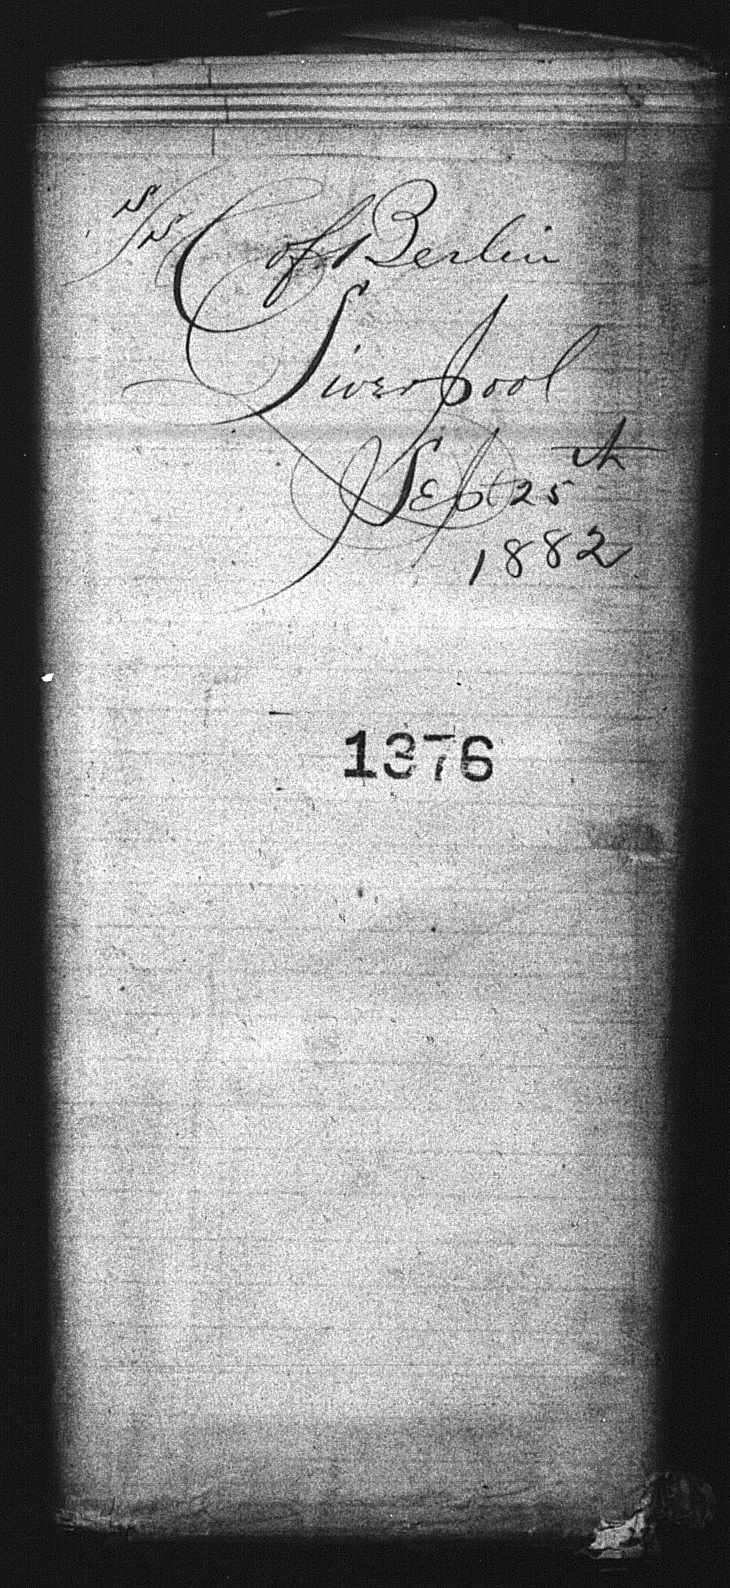 S/S C of Berlin
Liverpool
Sept 25th
1882
1376